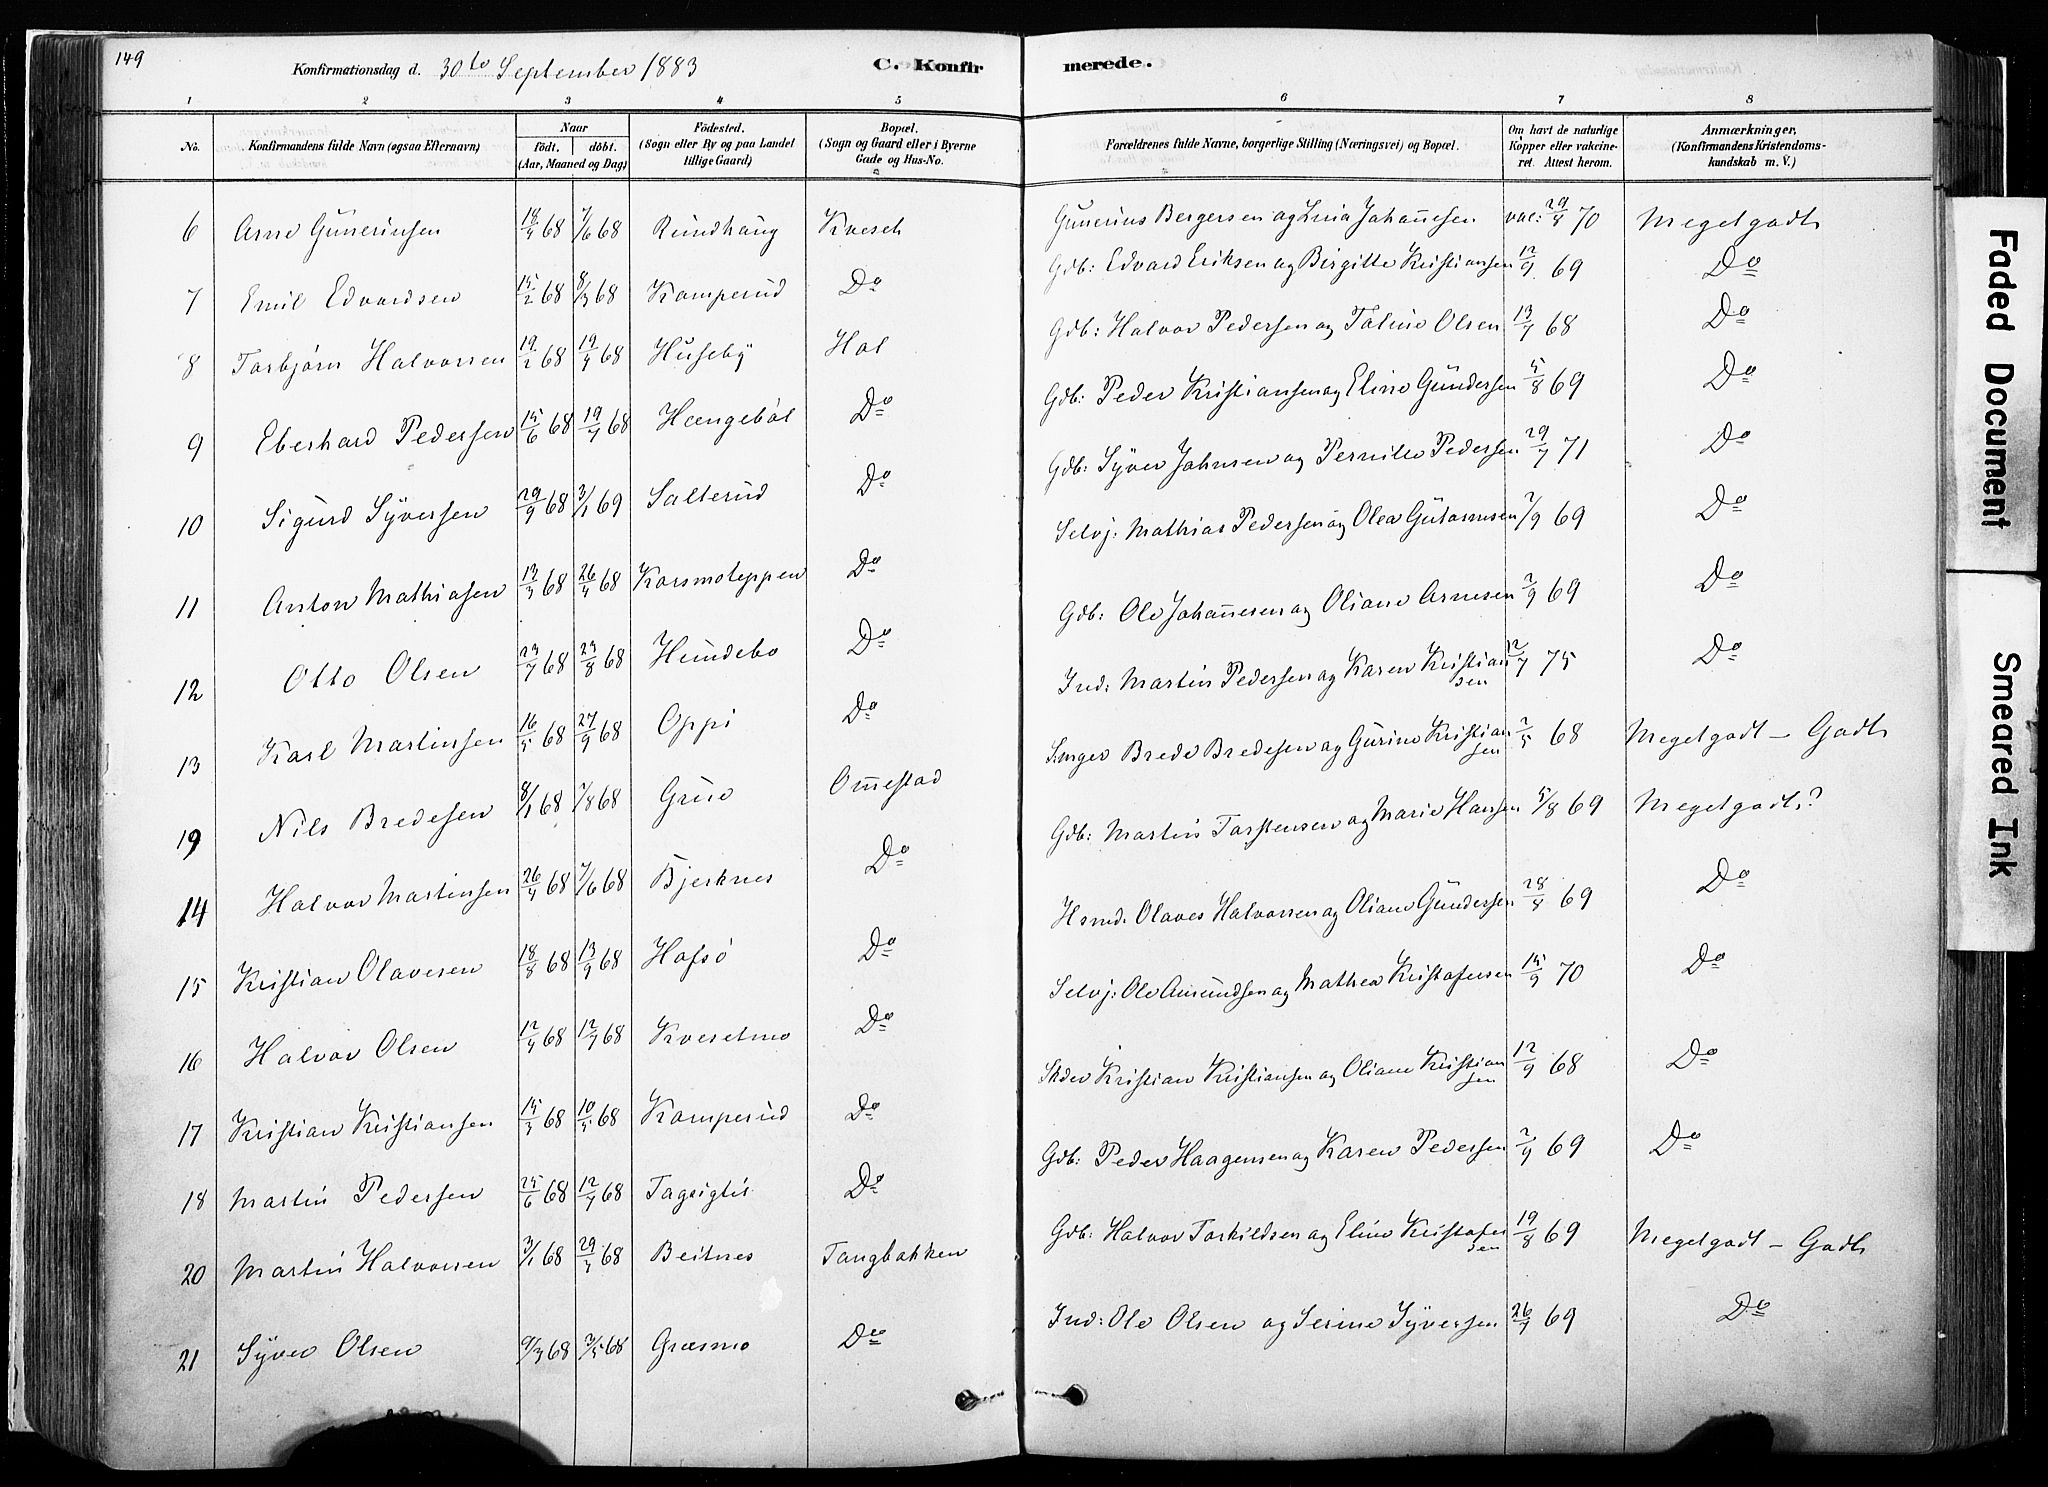 149
Konfirmationsdag d. 30te September 1883
C. Konfirmerede.
1 2 3 4 5 6 7 8
No.
Konfirmandens fulde Navn (ogsaa Efternavn)
Naar
födt. döbt.
(Aar, Maaned og Dag)
Födested.
(Sogn eller By og paa Landet tillige Gaard)
Bopæl.
(Sogn og Gaard eller i Byerne Gade og Hus-No.
Forældrenes fulde Navne, borgerlige Stilling (Næringsvei) og Bopæl.
Om havt de naturlige Kopper eller vakcineret. Attest herom.
Anmærkninger,
(Konfirmandens Kristendomskundskab m. V.)
6 Arne Gunerinsen 18/4 68 7/6 68 Rundhaug Kveset Gunerius Bergersen og Lina Johannesen vac: 29/8 70 Megetgodt
7 Emil Edvardsen 15/2 68 8/3 68 Kamperud Do Gdb: Edvard Eriksen og Birgitte Kristiansen 12/9 69 Do
8 Torbjørn Halvorsen 19/2 68 19/4 68 Huseby Hol Gdb: Halvor Pedersen og Taline Olsen 13/7 68 Do
9 Eberhard Pedersen 15/6 68 19/7 68 Hængebøl Do Gdb: Peder Kristiansen og Eline Gundersen 5/8 69 Do
10 Sigurd Syversen 29/9 68 3/1 69 Salterud Do Gdb: Syver Johnsen og Pernille Pedersen 29/7 71 Do
11 Anton Mathiasen 13/3 68 26/4 68 Karsmoteppen Do Selvj: Mathias Pedersen og Olea 2/9 69 Do
12 Otto Olsen 23/7 68 23/8 68 Hundebo Do Gdb: Ole Johannesen og Oliane Arnesen 2/9 69 Do
13 Karl Martinsen 16/5 68 27/9 68 Oppi Do Ind: Martin Pedersen og Karen Kristiansen 12/7 75 Do
19 Nils Bredesen 8/1 68 7/8 68 Grue Ommestad Brede Bredesen og Gurine Kristiansen 2/5 68 Megetgodt – Godt
14 Halvor Martinsen 26/4 68 7/6 68 Bjerknes Do Gdb: Martin Torstensen og Marie Hansen 5/8 69 Megetgodt?
15 Kristian Olavesen 18/8 68 13/9 68 Hafsø Do Hsmd. Olaves Halvorsen og Oliane Gundersen 28/8 69 Do
16 Halvor Olsen 12/4 68 12/7 68 Kvesetmo Do Selvj: Ole Amundsen og Mathea Kristofersen 15/9 70 Do
17 Kristian Kristiansen 15/3 68 10/5 68 Kamperud Do Kristian Kristiansen og Oliane Kristiansen 12/9 68 Do
18 Martin Pedersen 25/6 68 12/7 68 Do Gdb: Peder Haagensen og Karen Pedersen 2/9 69 Do
20 Martin Halvorsen 3/1 68 29/3 68 Beitnes Tangbakken Gdb: Halvor Torkildsen og Eline Kristofersen 19/8 69 Megetgodt – Godt
21 Syver Olsen 9/3 68 3/5 68 Græsmo Do Ind: Ole Olsen og Serine Syversen 26/7 69 Do
Faded Document
Smeared Ink